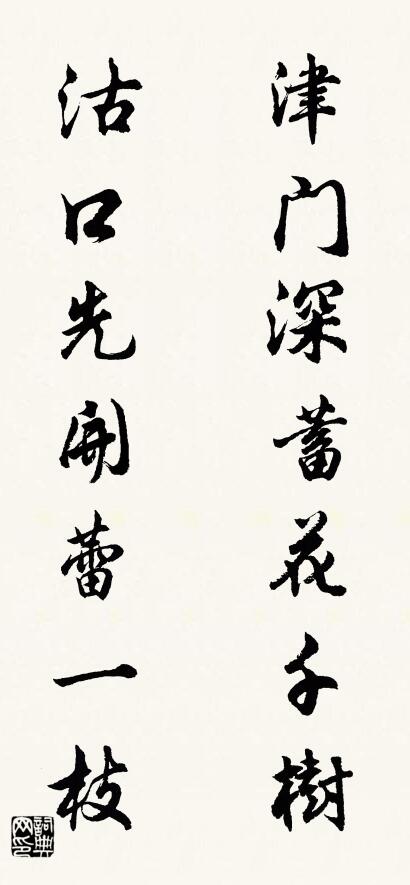 津门深蓄花千樹
沽口先開蕾一枝
詞典网印